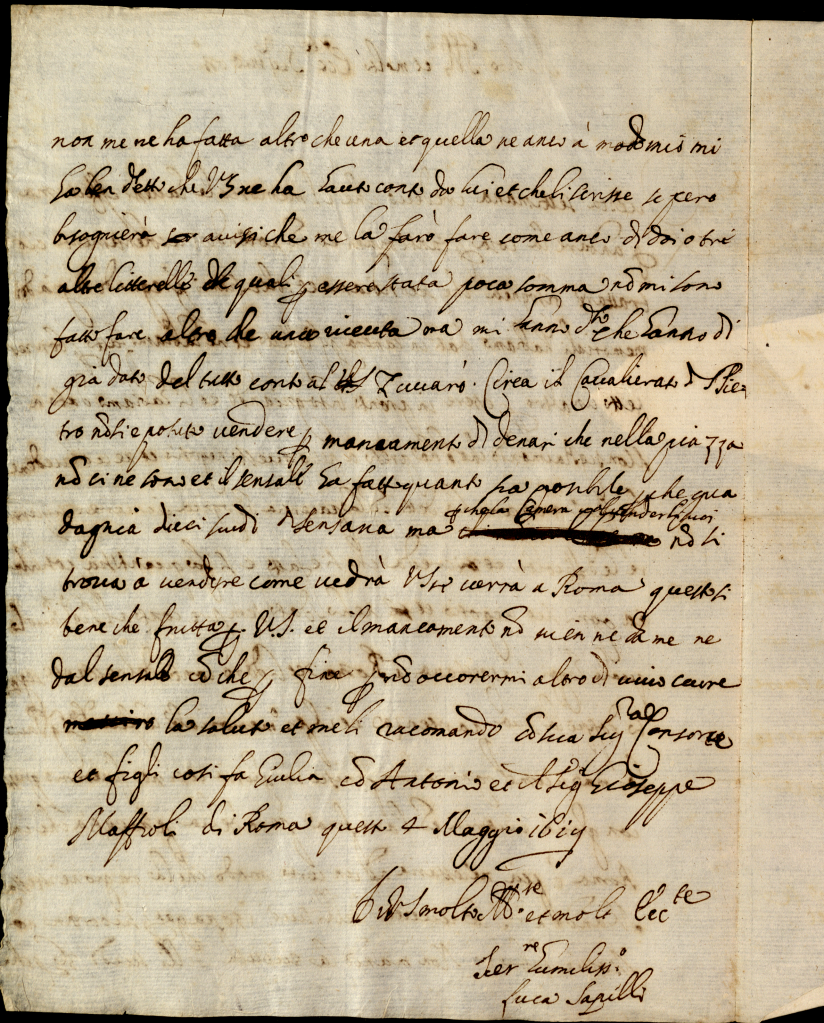 non me ne ha fatta altro che una et quella ne anco à modo mio mi
ha ben detto che VS ne ha hauto conto da lui et che li scrisse se pero
bisognierà avisi che me la farò fare come anco di doi o tre
altre litterelle de quali p essere stata poca somma nō mi sono
fatto fare altro che una ricevta ma mi hanno dto che hanno di
già dato del tutto conto al S Zuccarò. Circa il Cavalierato d S Pie
tro nō si e potuto vendere p mancamento di denari che nella piazza
nō ci ne sono et il sensale ha fatto quanto sia possibile p che gua
dagnia dieci scudi d sensaria ma nō si
p ingla Camera vol vender li suoi
trova a vendere come vedrà VS se verrà a Roma questo si
bene che frutta p V.S. et il mancamento nō vien ne da me ne
dal sensale cō che p fine p nō occorermi altro di vivo cuore
la saluto et me li racomando cō sua Sigra Consorte
et figli cosi fa Giulia cō Antonio et il Sig Gioseppe
Maffioli di Roma questo 4 Maggio 1619
Di VS molto Mre et molto Eccte
Serre humiliss.o
Luca Sapilli